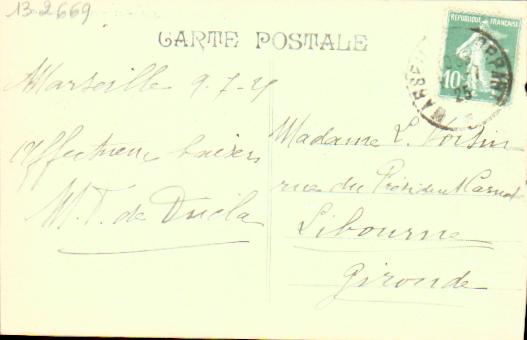 13-2669
RÉPUBLIQUE FRANÇAISE
10
MARSEILLE
25
CARTE POSTALE
Marseille 9-7-25
Affectueux baisers
M.T. de
Madame L. Voisin
rue du Président Carnot
Libourne
Gironde